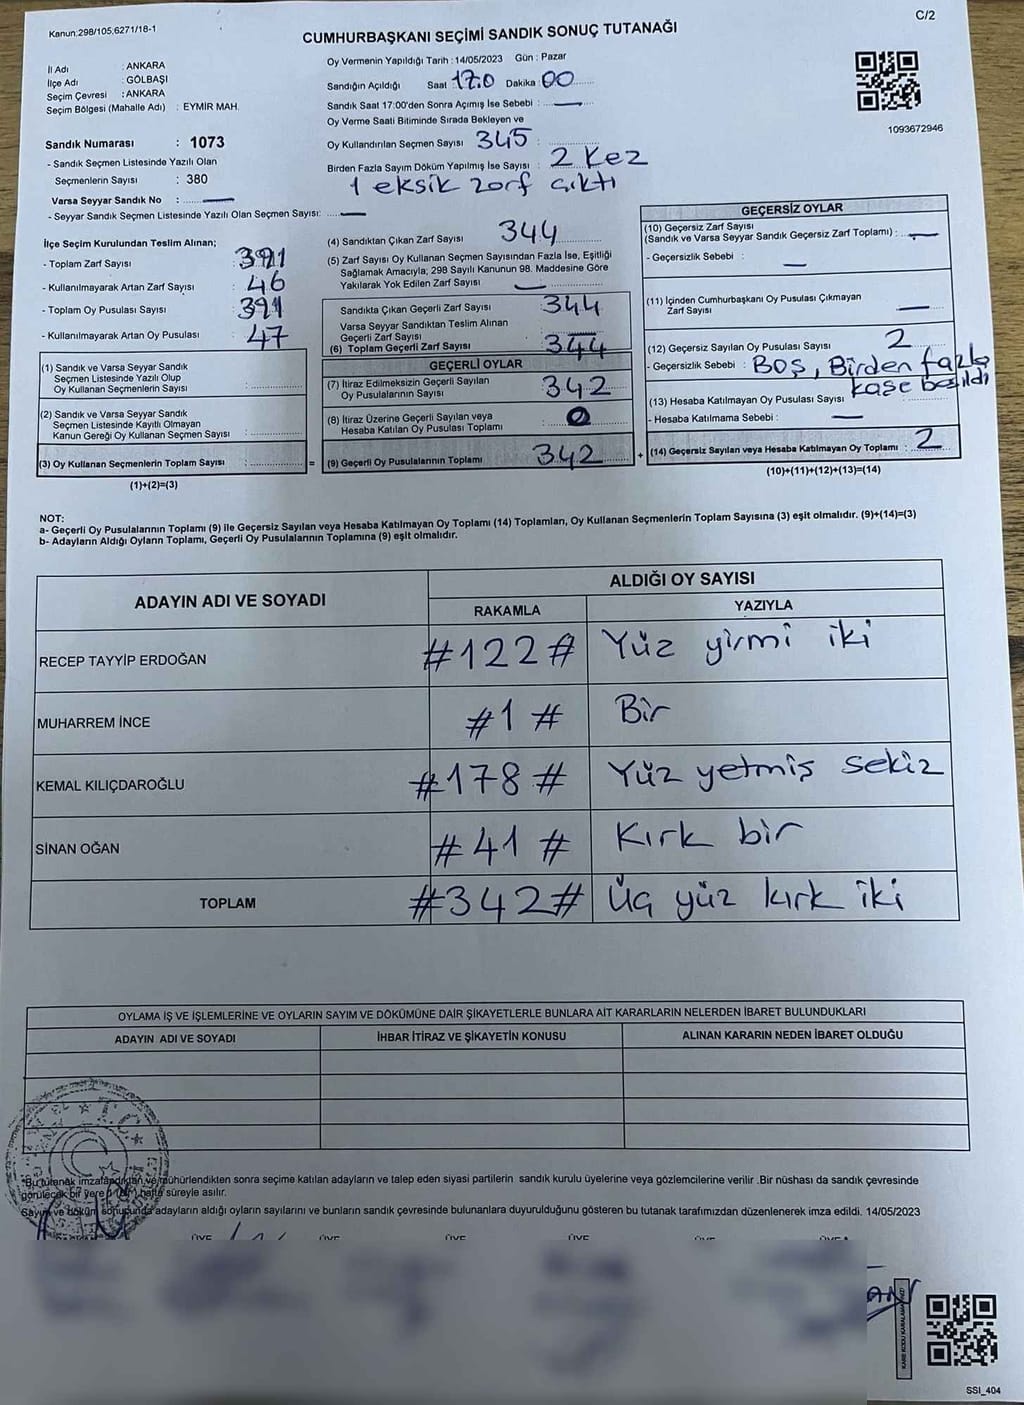 Kanun:298/105,6271/18-1
C/2
CUMHURBAŞKANI SEÇİMİ SANDIK SONUÇ TUTANAĞI
İl Adı : ANKARA
İlçe Adı : GÖLBAŞI
Seçim Çevresi : ANKARA
Seçim Bölgesi (Mahalle Adı) : EYMİR MAH.
Sandık Numarası : 1073
- Sandık Seçmen Listesinde Yazılı Olan
Seçmenlerin Sayısı : 380
Varsa Seyyar Sandık No :
- Seyyar Sandık Seçmen Listesinde Yazılı Olan Seçmen Sayısı:
Oy Vermenin Yapıldığı Tarih : 14/05/2023 Gün : Pazar
Sandığın Açıldığı Saat 17:0 Dakika : 00
Sandık Saat 17:00'den Sonra Açımış İse Sebebi :
Oy Verme Saati Bitiminde Sırada Bekleyen ve
Oy Kullandırılan Seçmen Sayısı 345
Birden Fazla Sayım Döküm Yapılmış İse Sayısı : 2 kez
1 eksik zarf çıktı
1093672946
İlçe Seçim Kurulundan Teslim Alınan;
- Toplam Zarf Sayısı : 391
- Kullanılmayarak Artan Zarf Sayısı : 46
- Toplam Oy Pusulası Sayısı : 391
- Kullanılmayarak Artan Oy Pusulası : 47
(1) Sandık ve Varsa Seyyar Sandık
Seçmen Listesinde Yazılı Olup
Oy Kullanan Seçmenlerin Sayısı :
(2) Sandık ve Varsa Seyyar Sandık
Seçmen Listesinde Kayıtlı Olmayan
Kanun Gereği Oy Kullanan Seçmen Sayısı :
(3) Oy Kullanan Seçmenlerin Toplam Sayısı :
(1)+(2)=(3)
=
(4) Sandıktan Çıkan Zarf Sayısı 344
(5) Zarf Sayısı Oy Kullanan Seçmen Sayısından Fazla İse, Eşitliği
Sağlamak Amacıyla; 298 Sayılı Kanunun 98. Maddesine Göre
Yakılarak Yok Edilen Zarf Sayısı :
Sandıkta Çıkan Geçerli Zarf Sayısı 344
Varsa Seyyar Sandıktan Teslim Alınan
Geçerli Zarf Sayısı
(6) Toplam Geçerli Zarf Sayısı 344
GEÇERLİ OYLAR
(7) İtiraz Edilmeksizin Geçerli Sayılan
Oy Pusulalarının Sayısı : 342
(8) İtiraz Üzerine Geçerli Sayılan veya
Hesaba Katılan Oy Pusulası Toplamı : 0
(9) Geçerli Oy Pusulalarının Toplamı 342
+
GEÇERSİZ OYLAR
(10) Geçersiz Zarf Sayısı
(Sandık ve Varsa Seyyar Sandık Geçersiz Zarf Toplamı) :
- Geçersizlik Sebebi :
(11) İçinden Cumhurbaşkanı Oy Pusulası Çıkmayan
Zarf Sayısı
(12) Geçersiz Sayılan Oy Pusulası Sayısı 2
- Geçersizlik Sebebi : Boş, Birden fazla
kaşe basıldı
(13) Hesaba Katılmayan Oy Pusulası Sayısı :
- Hesaba Katılmama Sebebi :
(14) Geçersiz Sayılan veya Hesaba Katılmayan Oy Toplamı : 2
(10)+(11)+(12)+(13)=(14)
NOT:
a- Geçerli Oy Pusulalarının Toplamı (9) ile Geçersiz Sayılan veya Hesaba Katılmayan Oy Toplamı (14) Toplamları, Oy Kullanan Seçmenlerin Toplam Sayısına (3) eşit olmalıdır. (9)+(14)=(3)
b- Adayların Aldığı Oyların Toplamı, Geçerli Oy Pusulalarının Toplamına (9) eşit olmalıdır.
ADAYIN ADI VE SOYADI
ALDIĞI OY SAYISI
RAKAMLA YAZIYLA
RECEP TAYYİP ERDOĞAN #122# Yüz yirmi iki
MUHARREM İNCE #1# Bir
KEMAL KILIÇDAROĞLU #178# Yüz yetmiş sekiz
SİNAN OĞAN #41# Kırk bir
TOPLAM #342# Üç yüz kırk iki
OYLAMA İŞ VE İŞLEMLERİNE VE OYLARIN SAYIM VE DÖKÜMÜNE DAİR ŞİKAYETLERLE BUNLARA AİT KARARLARIN NELERDEN İBARET BULUNDUKLARI
ADAYIN ADI VE SOYADI İHBAR İTİRAZ VE ŞİKAYETİN KONUSU ALINAN KARARIN NEDEN İBARET OLDUĞU
Bu tutanak imzalandıktan ve mühürlendikten sonra seçime katılan adayların ve talep eden siyasi partilerin sandık kurulu üyelerine veya gözlemcilerine verilir .Bir nüshası da sandık çevresinde
görülecek bir yere hafta süreyle asılır.
Sayım ve döküm sonucunda adayların aldığı oyların sayılarını ve bunların sandık çevresinde bulunanlara duyurulduğunu gösteren bu tutanak tarafımızdan düzenlenerek imza edildi. 14/05/2023
ÜYE ÜYE ÜYE ÜYE ÜYE ÜYE
KARE KODU KARALAMAYINIZ!
SSI_404